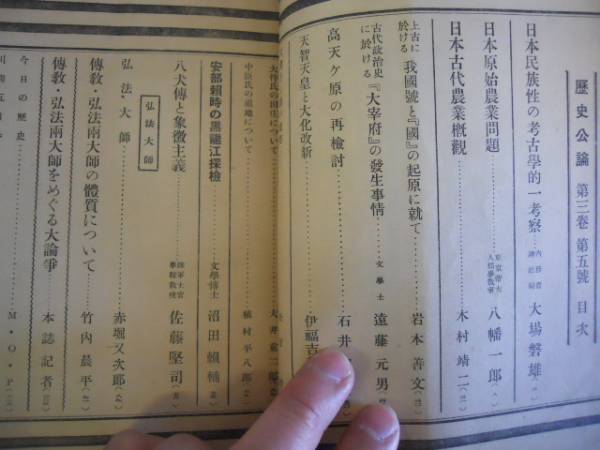 歷史公論 第三卷 第五號 目次
日本民族性の考古學的一考察 大場磐雄
日本原始農業問題 東京帝大人類學敎室 八幡一郎
日本古代農業概觀 木村靖二
上古に於ける 我國號と『國』の起原に就て 岩本善文
古代政治史に於ける 『大宰府』の發生事情 文學士 遠藤元男
高天ヶ原の再檢討 石井
天智天皇と大化改新 伊福吉
大伴氏の
中臣氏の 植村平八郞
安部賴時の黑龍江探檢 文學博士 沼田賴輔
八犬傳と象徵主義 佐藤堅司
弘法大師
弘法大師 赤堀又次郞
傳敎・弘法兩大師の體質について 竹內晨平
傳敎・弘法兩大師をめぐる大論爭 本誌記者
今日の歷史 M・O・P